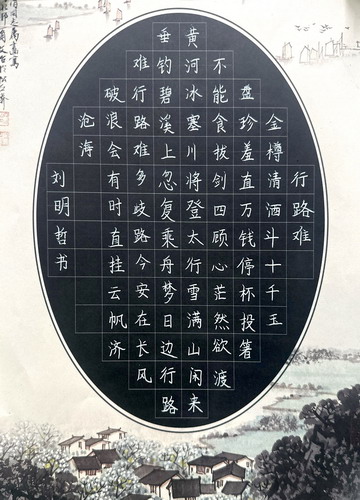 行路难
金樽清酒斗十千玉
盘珍羞直万钱停杯投箸
不能食拔剑四顾心茫然欲渡
黄河冰塞川将登太行雪满山闲来
垂钓碧溪上忽复乘舟梦日边行路
难行路难多歧路今安在长风
破浪会有时直挂云帆济
沧海
刘明哲书